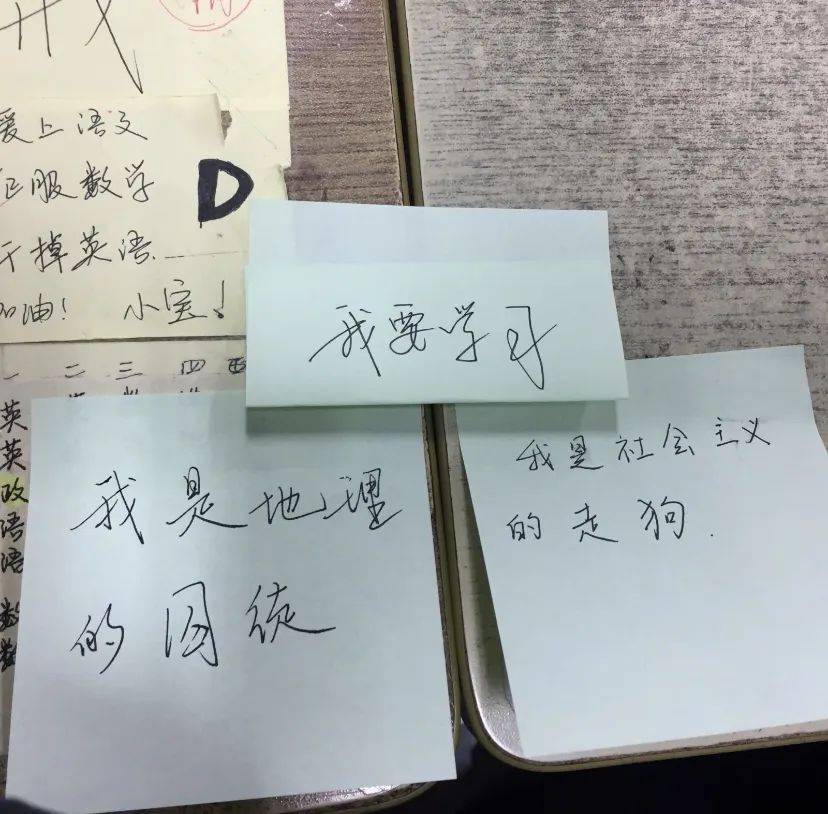 爱上语文
征服数学
干掉英语
加油! 小宝!
D
我要学习
我是地理
的囚徒
我是社会主义
的走狗.
一 二 三 四
英
英
政
语
语
数
数